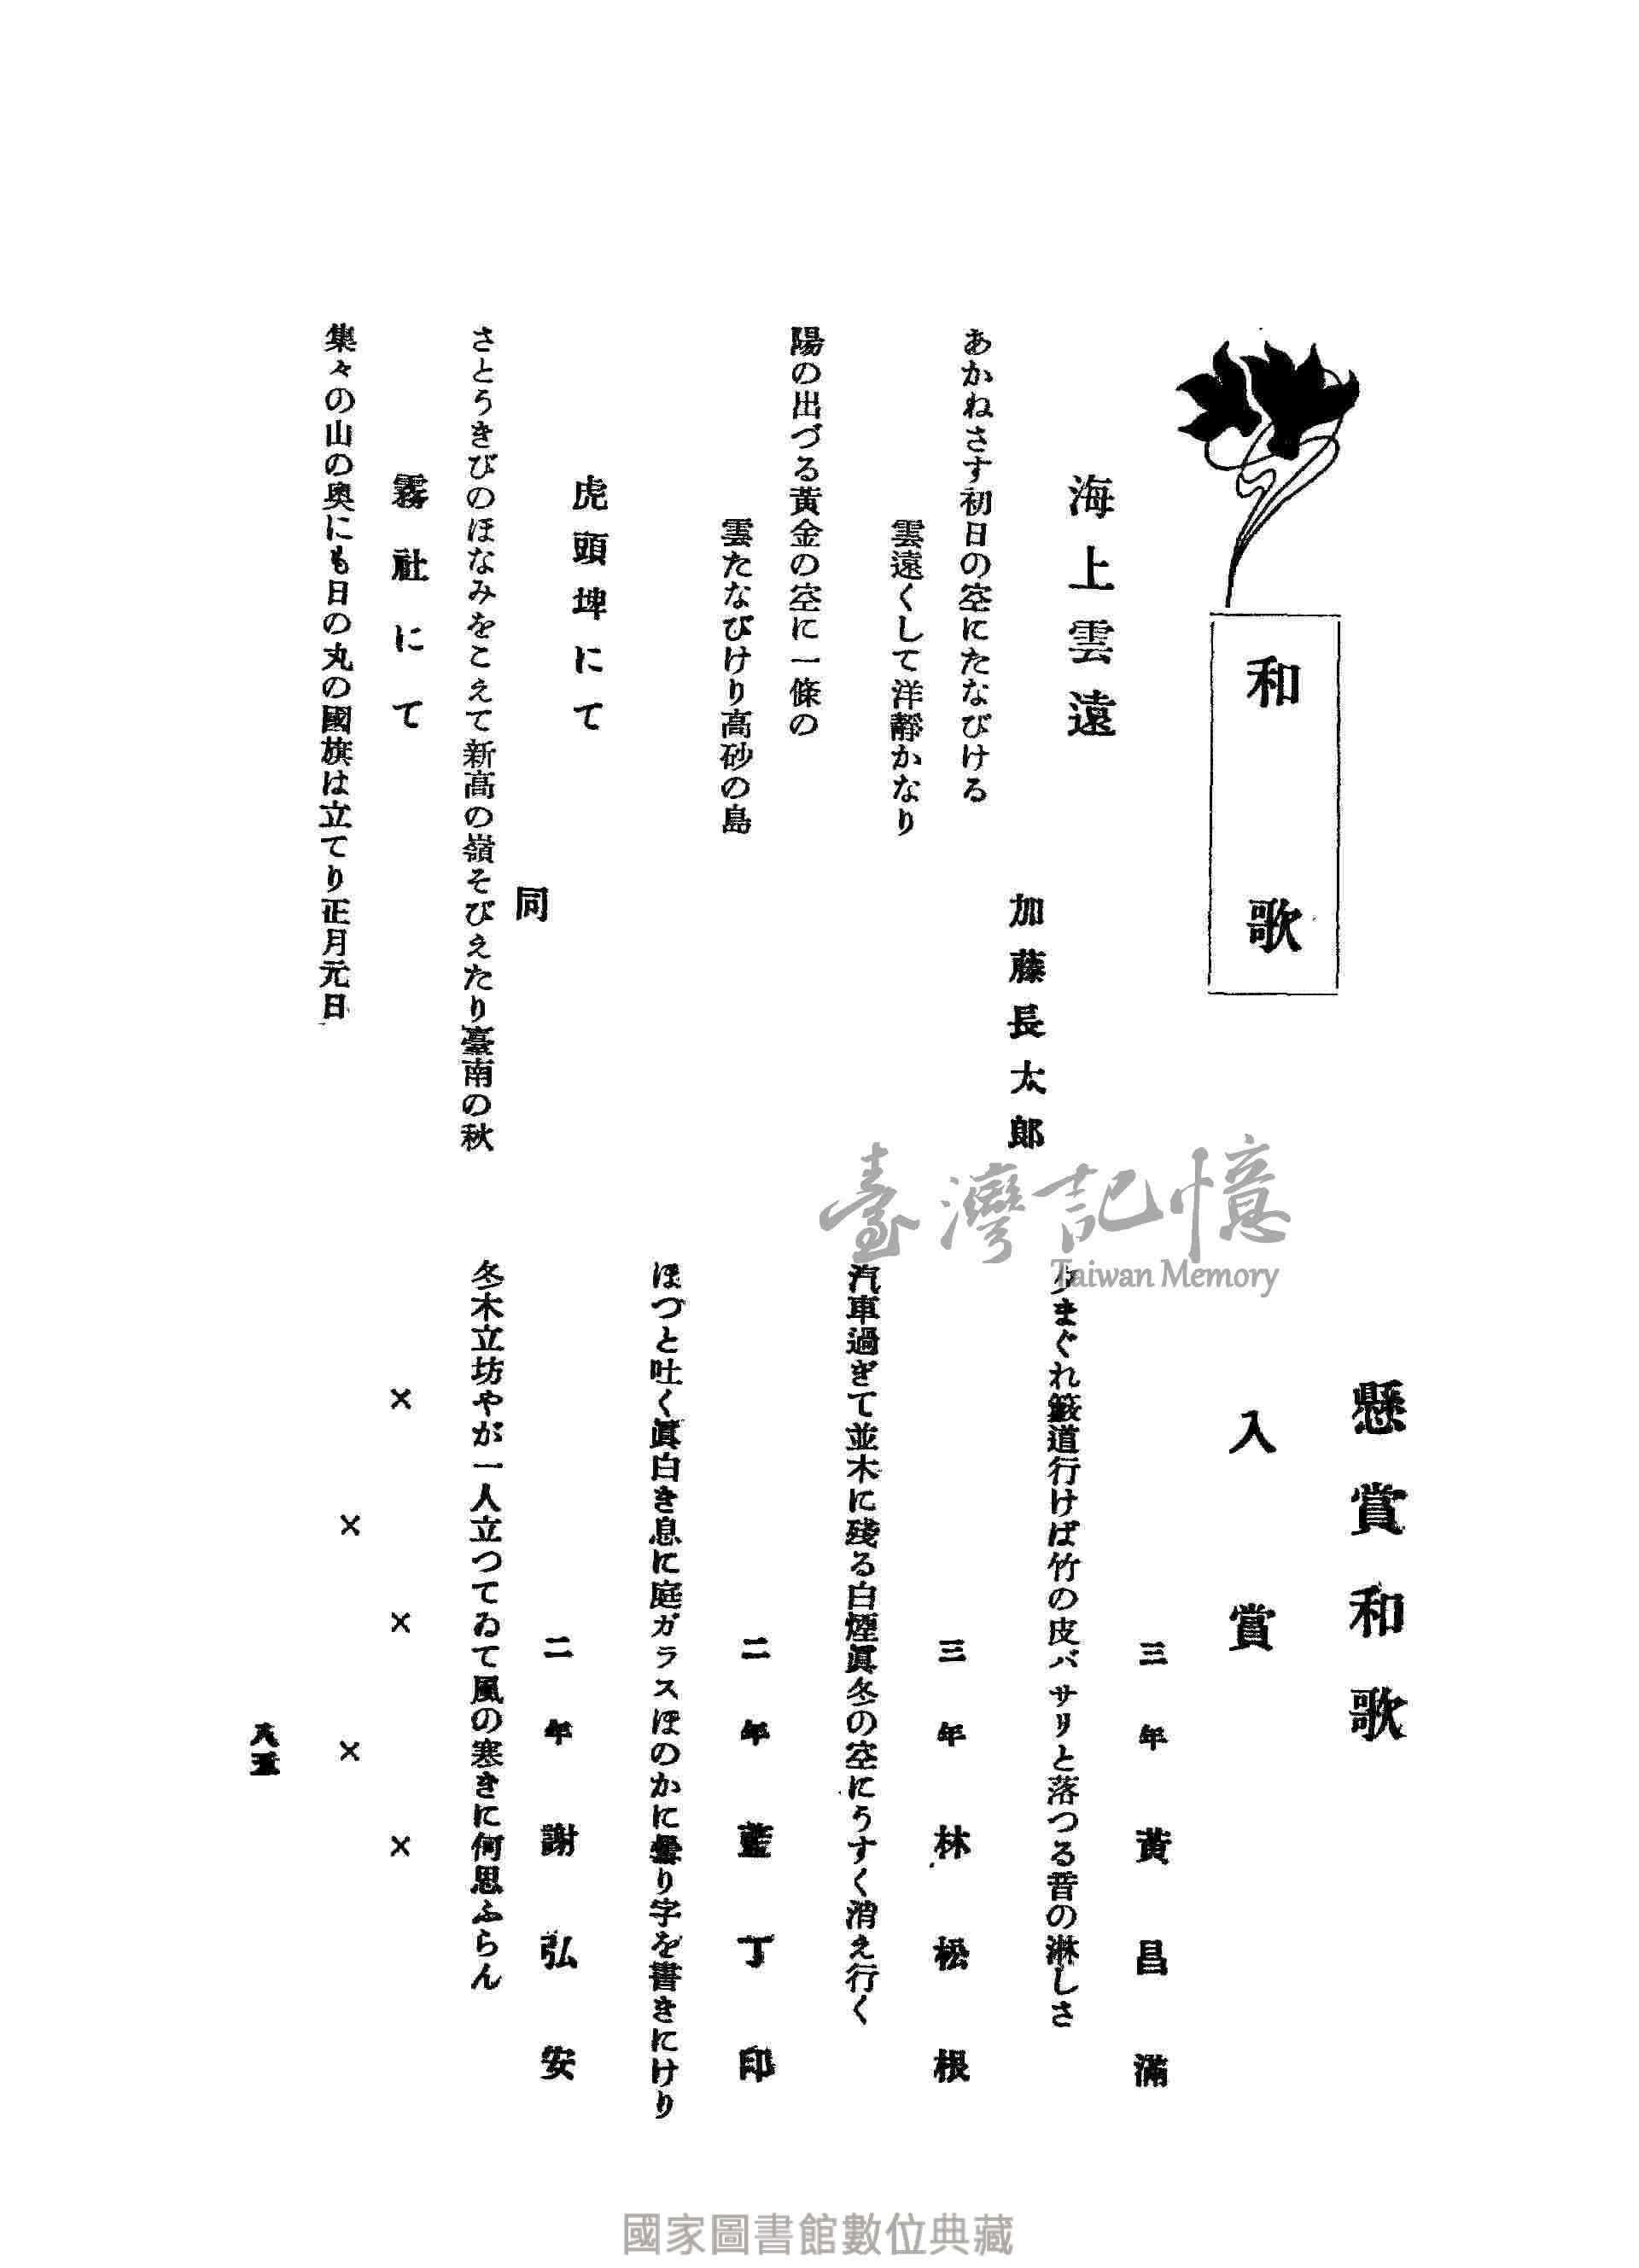 和歌
海上雲遠
加藤長太郎
あかねさす初日の空にたなびける
雲遠くして洋靜かなり
陽の出づる黃金の空に一條の
雲たなびけり高砂の島
虎頭埤にて
同
さとうきびのほなみをこえて新高の嶺そびえたり臺南の秋
霧社にて
集々の山の奥にも日の丸の國旗は立てり正月元日
懸賞和歌
入賞
三年 黃昌滿
夕まぐれ藪道行けば竹の皮バサリと落つる音の淋しさ
三年 林松根
汽車過ぎて並木に殘る白煙眞冬の空にうすく消え行く
二年 藍丁印
ほづと吐く眞白き息に庭ガラスほのかに曇り字を書きにけり
二年 謝弘安
冬木立坊やが一人立つてゐて風の寒きに何思ふらん
× × × × ×
八五
臺灣記憶
Taiwan Memory
國家圖書館數位典藏